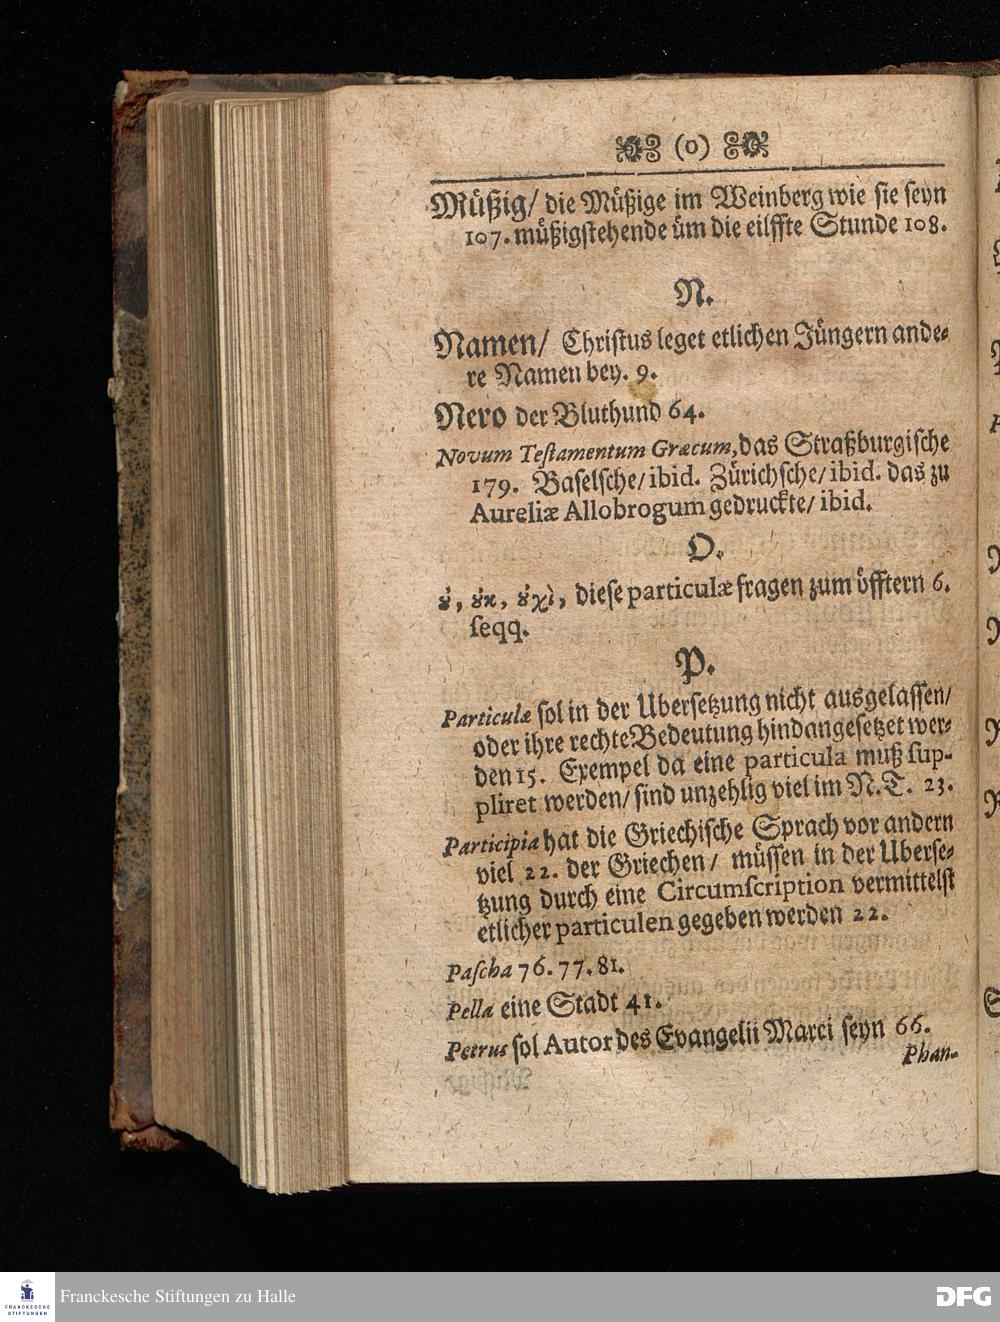 (o)
Müßig/ die Müßige im Weinberg wie sie seyn
107. müßigstehende üm die eilffte Stunde 108.
N.
Namen/ Christus leget etlichen Jüngern ande-
re Namen bey. 9.
Nero der Bluthund 64.
Novum Testamentum Græcum, das Straßburgische
179. Baselsche/ ibid. Zürichsche/ ibid. das zu
Aureliæ Allobrogum gedruckte/ ibid.
O.
ȣ̓, ȣ̓κ, ȣ̓χὶ, diese particulæ fragen zum öfftern 6.
seqq.
P.
Particulæ sol in der Ubersetzung nicht ausgelassen/
oder ihre rechte Bedeutung hindangesetzet wer-
den 15. Exempel da eine particula muß sup-
pliret werden/ sind unzehlig viel im N.T. 23.
Participia hat die Griechische Sprach vor andern
viel 22. der Griechen/ müssen in der Uberse-
tzung durch eine Circumscription vermittelst
etlicher particulen gegeben werden 22.
Pascha 76. 77. 81.
Pella eine Stadt 41.
Petrus sol Autor des Evangelii Marci seyn 66.
Phan-
FRANCKESCHE
STIFTUNGEN
Franckesche Stiftungen zu Halle
DFG